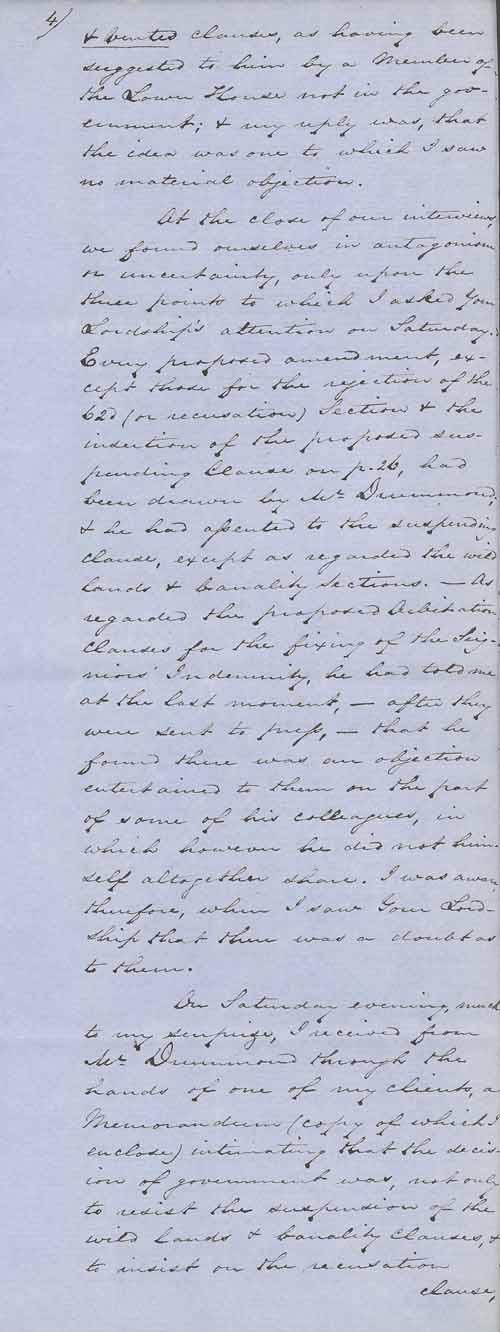 4)
& ventes clauses, as having been
suggested to him by a Member of
the Lower House not in the gov-
ernment; & my reply was, that
the idea was one to which I saw
no material objection.
At the close of our interview,
we found ourselves in antagonism
or uncertainty, only upon the
three points to which I asked Your
Lordship's attention on Saturday.
Every proposed amendment, ex-
cept those for the rejection of the
62d (or recusation) Section & the
insertion of the proposed sus-
pending Clause on p. 26, had
been drawn by Mr Drummond;
& he had assented to the suspending
clause, except as regarded the wild
lands & banality sections. — As
regarded the proposed Arbitration
Clauses for the fixing of the Seig-
niors' Indemnity, he had told me
at the last moment, — after they
were sent to press, — that he
found there was an objection
entertained to them on the part
of some of his colleagues, in
which however he did not him-
self altogether share. I was aware
therefore, when I saw Your Lord-
ship that there was a doubt as
to them.
On Saturday evening, much
to my surprize, I received from
Mr Drummond through the
hands of one of my clients, a
Memorandum (copy of which I
enclose) intimating that the decis-
ion of government was, not only
to resist the suspension of the
wild lands & banality clauses, &
to insist on the recusation
clause,